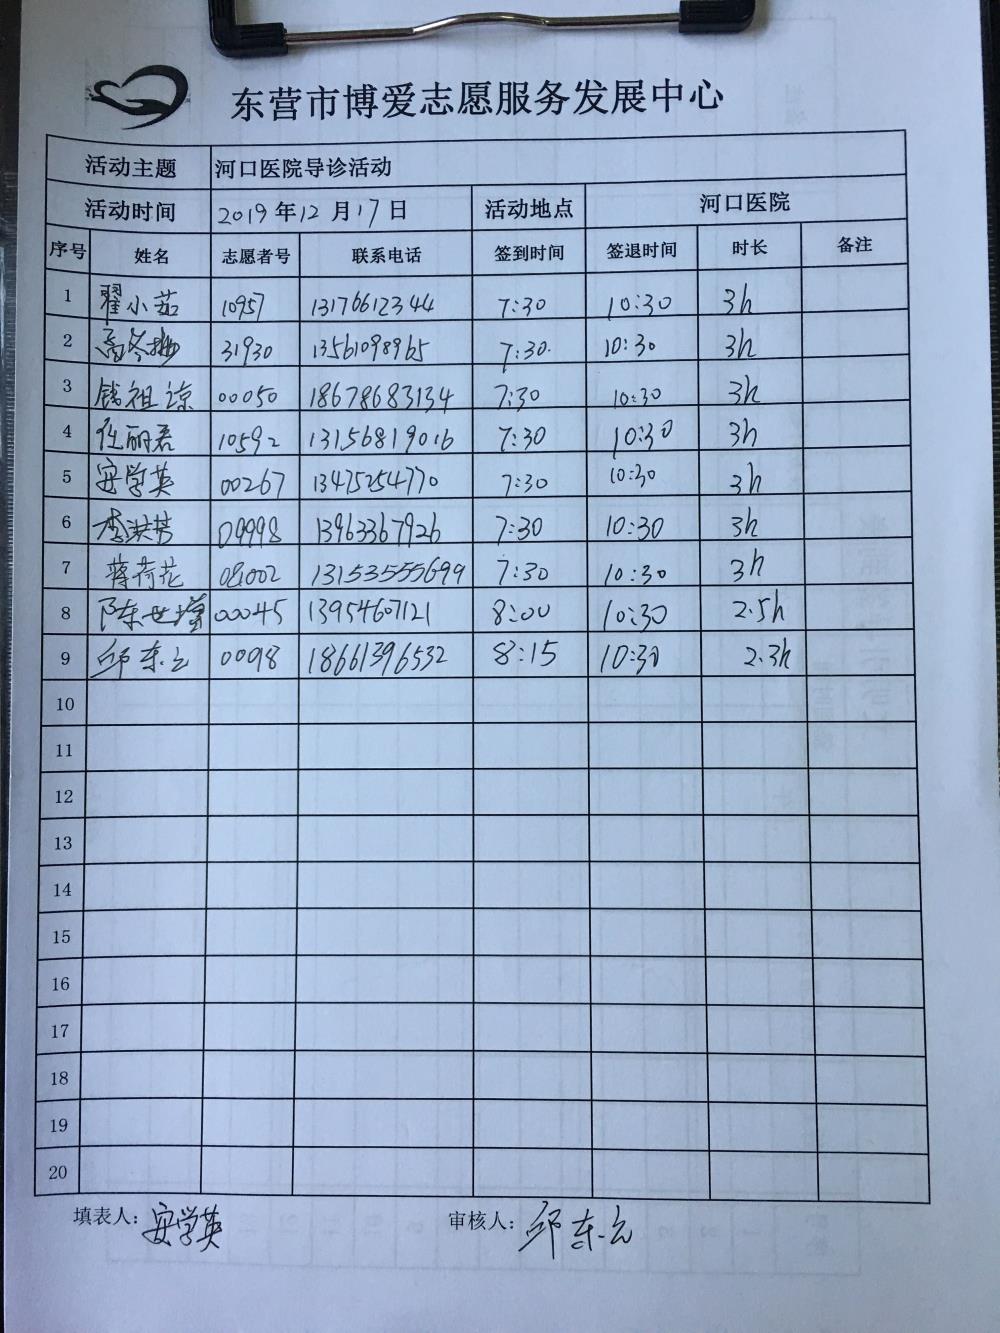 东营市博爱志愿服务发展中心
活动主题 河口医院导诊活动
活动时间 2019年12月17日 活动地点 河口医院
序号 姓名 志愿者号 联系电话 签到时间 签退时间 时长 备注
1 翟小茹 10957 13176612344 7:30 10:30 3h
2 31930 13561098965 7:30. 10:30 3h
3 钱祖谅 00050 18678683134 7:30 10:30 3h
4 任丽君 10592 13156819016 7:30 10:30 3h
5 安学英 00267 13475254770 7:30 10:30 3h
6 李洪芳 09998 13963367926 7:30 10:30 3h
7 蒋荷花 08002 13153555699 7:30 10:30 3h
8 00045 13954607121 8:00 10:30 2.5h
9 邱东云 0098 18661396532 8:15 10:30 2.3h
10
11
12
13
14
15
16
17
18
19
20
填表人：安学英 审核人：邱东云